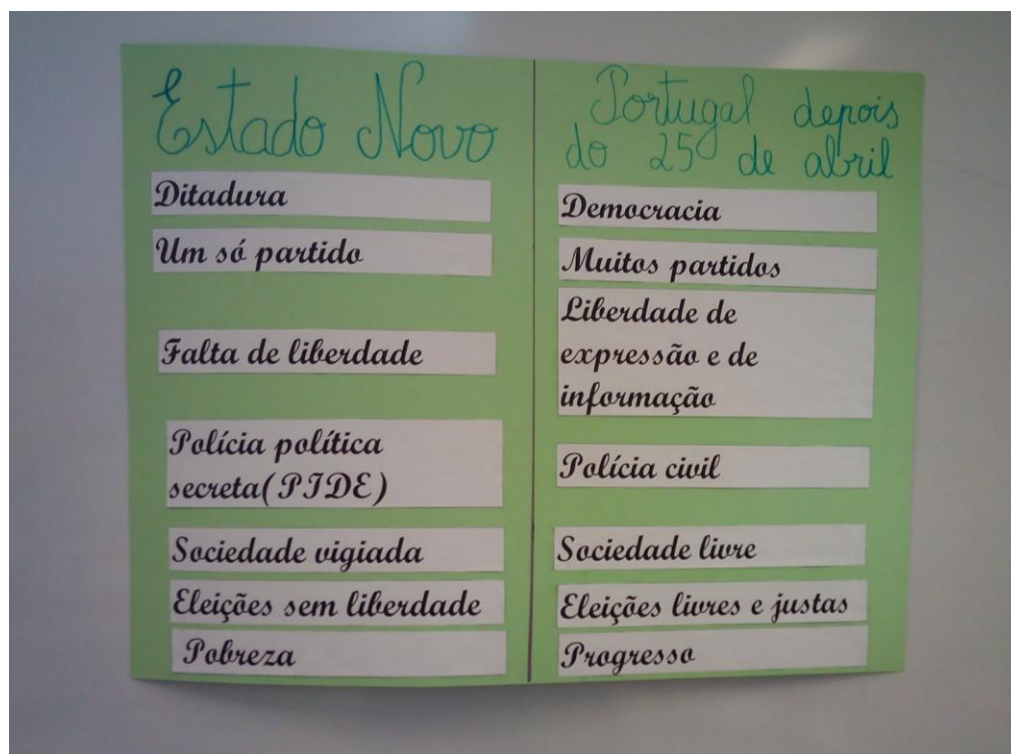 Estado Novo
Ditadura
Um só partido
Falta de liberdade
Polícia política
secreta(PIDE)
Sociedade vigiada
Eleições sem liberdade
Pobreza
Portugal depois
do 25 de abril
Democracia
Muitos partidos
Liberdade de
expressão e de
informação
Polícia civil
Sociedade livre
Eleições livres e justas
Progresso